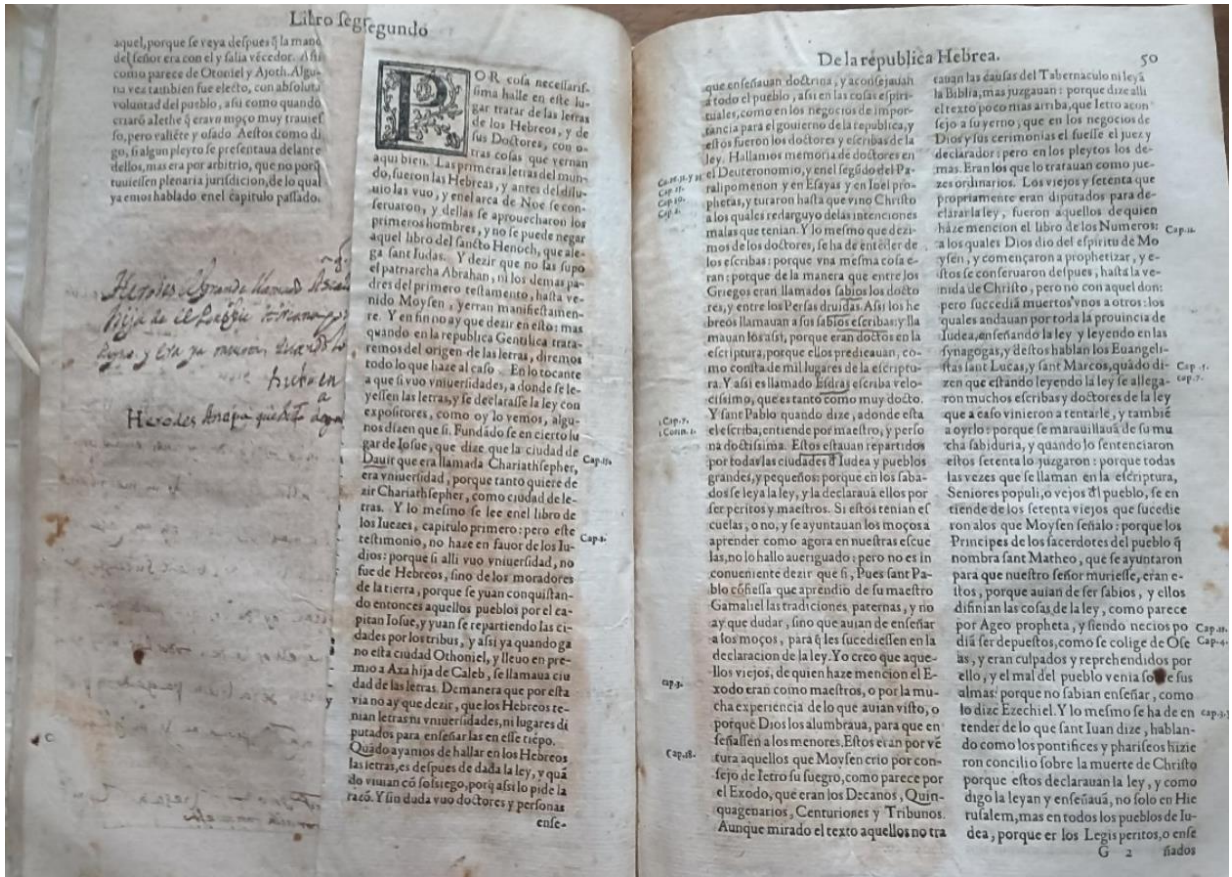 Libro segsegundo
aquel, porque se veya despues q̃ la mano
del señor era con el y salia vẽcedor. Assi
como parece de Otoniel y Ajoth. Algu-
na vez tambien fue electo, con absoluta
voluntad del pueblo, assi como quando
criarõ a Iethe q̃ era vn moço muy trauies
so, pero valiẽte y osado. Aestos como di
go, si algun pleyto se presentaua delante
dellos, mas era por arbitrio, que no porq̃
tuuiessen plenaria jurisdicion, de lo qual
ya emos hablado enel capitulo passado.
Herodes el grande llamado
hija de
Reyno y era ya
Herodes
POR cosa necessaris-
sima halle en este lu-
gar tratar de las letras
de los Hebreos, y de
sus Doctores, con o-
tras cosas que vernan
aqui bien. Las primeras letras del mun-
do, fueron las Hebreas, y antes del dilu-
uio las vuo, y enel arca de Noe se con-
seruaron, y dellas se aprouecharon los
primeros hombres, y no se puede negar
aquel libro del sancto Henoch, que ale-
ga sant Iudas. Y dezir que no las supo
el patriarcha Abrahan, ni los demas pa-
dres del primero testamento, hasta ve-
nido Moysen, yerran manifiestamen-
te. Y en fin no ay que dezir en esto: mas
quando en la republica Gentilica trata-
remos del origen de las letras, diremos
todo lo que haze al caso. En lo tocante
a que si vuo vniuersidades, a donde se le-
yessen las letras, y se declarasse la ley con
expositores, como oy lo vemos, algu-
nos dizen que si. Fundãdo se en cierto lu
gar de Iosue, que dize que la ciudad de
Dauir que era llamada Chariathsepher, Cap.15.
era vniuersidad, porque tanto quiere de
zir Chariathsepher, como ciudad de le-
tras. Y lo mesmo se lee enel libro de
los Iuezes, capitulo primero: pero este
testimonio, no haze en fauor de los Iu- Cap.1.
dios: porque si alli vuo vniuersidad, no
fue de Hebreos, sino de los moradores
de la tierra, porque se yuan conquistan-
do entonces aquellos pueblos por el ca-
pitan Iosue, y yuan se repartiendo las ci-
dades por los tribus, y assi ya quando ga
no esta ciudad Othoniel, y lleuo en pre-
mio a Axa hija de Caleb, se llamaua ciu
dad de las letras. Demanera que por esta
via no ay que dezir, que los Hebreos te-
nian letras ni vniuersidades, ni lugares di
putados para enseñar las en esse tiẽpo.
Quãdo ayamos de hallar en los Hebreos
las letras, es despues de dada la ley, y quã
do viuian cõ sosiego, porq̃ assi lo pide la
razõ. Y sin duda vuo doctores y personas
ense-
De la republica Hebrea. 50
que enseñauan doctrina, y aconsejauan
a todo el pueblo, assi en las cosas espiri-
tuales, como en los negocios de impor-
tancia para el gouierno de la republica, y
estos fueron los doctores y escribas de la
ley. Hallamos memoria de doctores en
el Deuteronomio, y enel segũdo del Pa-
ralipomenon y en Esayas y en Ioel pro-
phetas, y turaron hasta que vino Christo
a los quales redarguyo delas intenciones
malas que tenian. Y lo mesmo que dezi-
mos de los doctores, se ha de entẽder de
los escribas: porque vna mesma cosa e-
ran: porque de la manera que entre los
Griegos eran llamados sabios los docto
res, y entre los Persas druidas. Assi los he
breos llamauan a sus sabios escribas: y lla
mauan los assi, porque eran doctos en la
escriptura, porque ellos predicauan, co-
mo consta de mil lugares de la escriptu-
ra. Y assi es llamado Esdras escriba velo-
cissimo, que es tanto como muy docto.
Y sant Pablo quando dize, adonde esta 1.Corin.1.
el escriba, entiende por maestro, y perso
na doctissima. Estos estauan repartidos
por todas las ciudades d̃ Iudea y pueblos
grandes, y pequeños: porque en los saba-
dos se leya la ley, y la declaraua ellos por
ser peritos y maestros. Si estos tenian es
cuelas, o no, y se ayuntauan los moços a
aprender como agora en nuestras escue
las, no lo hallo aueriguado: pero no es in
conueniente dezir que si, Pues sant Pa-
blo cõfiessa que aprendio de su maestro
Gamaliel las tradiciones paternas, y no
ay que dudar, sino que auian de enseñar
a los moços, para q̃ les sucediessen en la
declaracion de la ley. Yo creo que aque-
llos viejos, de quien haze mencion el E- cap.3.
xodo eran como maestros, o por la mu-
cha experiencia de lo que auian visto, o
porque Dios los alumbraua, para que en
señassen a los menores. Estos eran por vẽ
tura aquellos que Moysen crio por con- Cap.18.
sejo de Ietro su suegro, como parece por
el Exodo, que eran los Decanos, Quin-
quagenarios, Centuriones y Tribunos.
Aunque mirado el texto aquellos no tra
tauan las causas del Tabernaculo ni leyã
la Biblia, mas juzgauan: porque dize alli
el texto poco mas arriba, que Ietro acon
sejo a su yerno, que en los negocios de
Dios y sus cerimonias el fuesse el juez y
declarador: pero en los pleytos los de-
mas. Eran los que lo tratauan como jue-
zes ordinarios. Los viejos y setenta que
propriamente eran diputados para de-
clarar la ley, fueron aquellos de quien
haze mencion el libro de los Numeros: Cap.11.
a los quales Dios dio del espiritu de Mo
ysen, y començaron a prophetizar, y e-
stos se conseruaron despues, hasta la ve-
nida de Christo, pero no con aquel don:
pero succediã muertos vnos a otros: los
quales andauan por toda la prouincia de
Iudea, enseñando la ley y leyendo en las
synagogas, y destos hablan los Euangeli-
stas sant Lucas, y sant Marcos, quãdo di-
zen que estando leyendo la ley se allega-
ron muchos escribas y doctores de la ley
que a caso vinieron a tentarle, y tambiẽ
a oyrlo: porque se marauillauã de su mu
cha sabiduria, y quando lo sentenciaron
estos setenta lo juzgaron: porque todas
las vezes que se llaman en la escriptura,
Seniores populi, o vejos d̃l pueblo, se en
tiende de los setenta viejos que sucedie
ron a los que Moysen señalo: porque los
Principes de los sacerdotes del pueblo q̃
nombra sant Matheo, que se ayuntaron
para que nuestro señor muriesse, eran e-
stos, porque auian de ser sabios, y ellos
difinian las cosas de la ley, como parece
por Ageo propheta, y siendo necios po
diã ser depuestos, como se colige de Ose Cap.4.
as, y eran culpados y reprehendidos por
ello, y el mal del pueblo venia sobre sus
almas: porque no sabian enseñar, como
lo dize Ezechiel. Y lo mesmo se ha de en
tender de lo que sant Iuan dize, hablan-
do como los pontifices y phariseos hizie
ron concilio sobre la muerte de Christo
porque estos declarauan la ley, y como
digo la leyan y enseñauã, no solo en Hie
rusalem, mas en todos los pueblos de Iu-
dea, porque er los Legisperitos, o ense
G 2 ñados